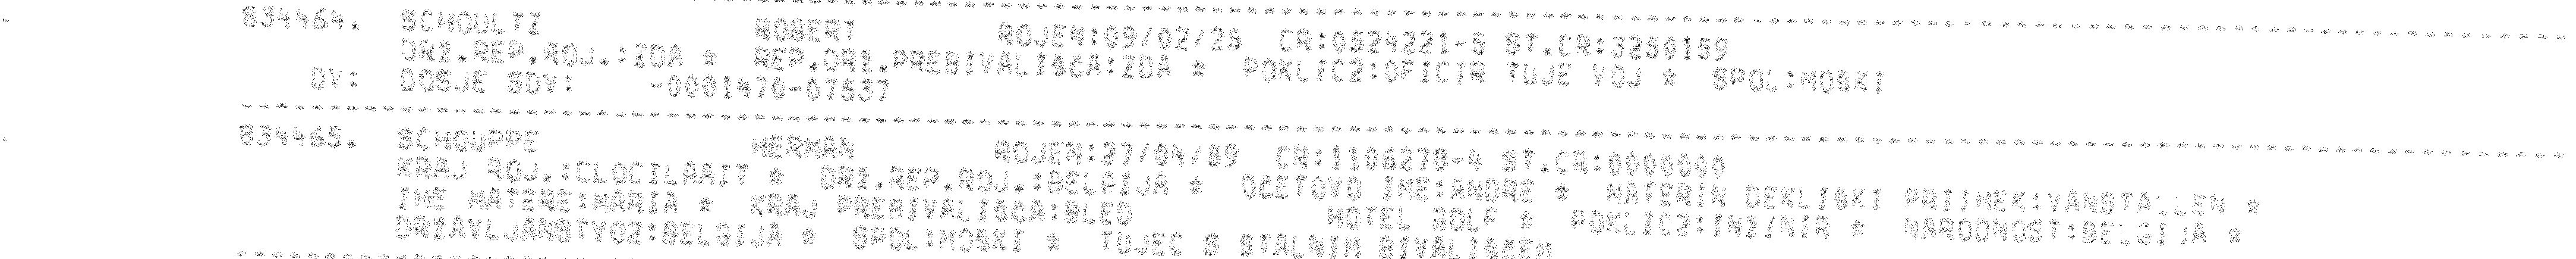 834464. SCHOULTZ ROBERT ROJEN:09/02/25 CR:0524221-5 ST.CR:3250159
DRZ.REP.ROJ.:ZDA * REP.DRZ.PREBIVALISCA:ZDA * POKLIC2:OFICIR TUJE VOJ * SPOL:MOSKI
DV: DOSJE SDV: -0001470-07537
834465. SCHOUPPE HERMAN ROJEN:27/04/89 CR:1106278-4 ST.CR:0000000
KRAJ ROJ.:CLOCTLAAIT * DRZ.REP.ROJ.:BELGIJA * OCETOVO IME:ANDRE * MATERIN DEKLISKI PRIIMEK:VANSTALLEN *
IME MATERE:MARIA * KRAJ PREBIVALISCA:BLED HOTEL GOLF * POKLIC2:INZ/NIR * NARODNOST:BELGIJA *
DRZAVLJANSTVO2:BELGIJA * SPOL:MOSKI * TUJEC S STALNIM BIVALISCEM